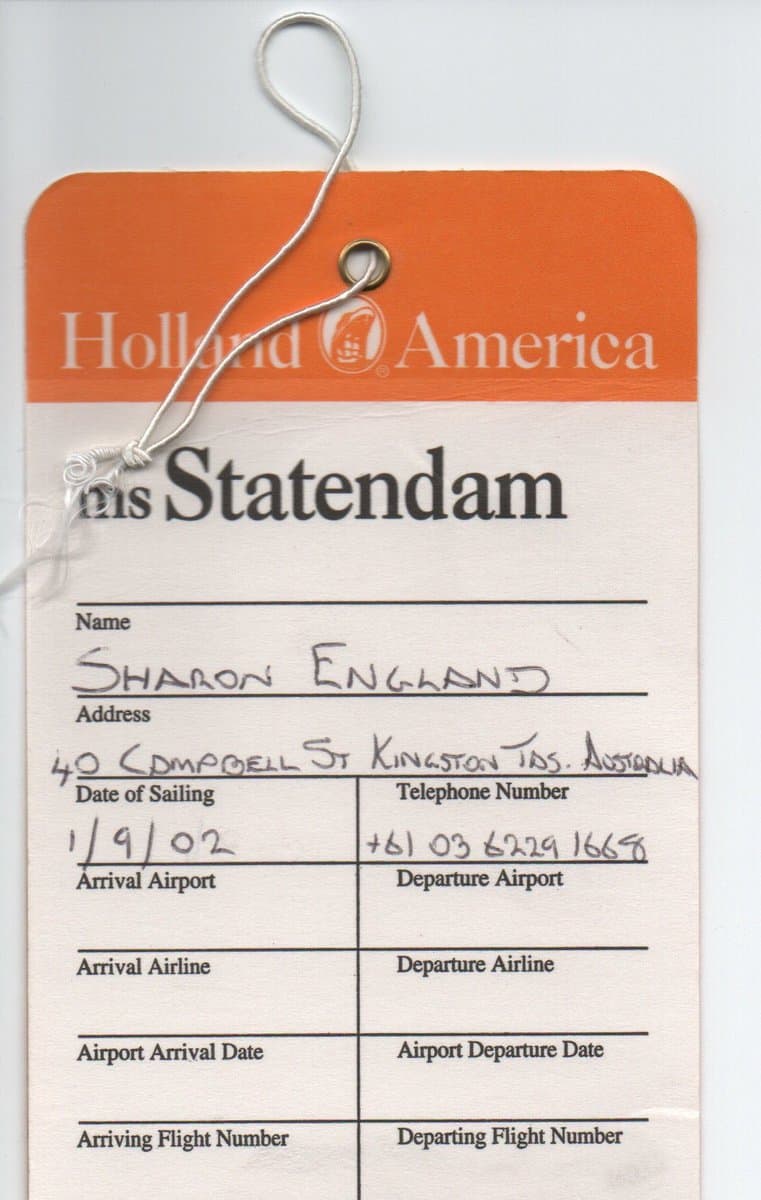 Holland America
ms Statendam
Name
SHARON ENGLAND
Address
40 CAMPBELL ST KINGSTON TAS. AUSTRALIA
Date of Sailing Telephone Number
1/9/02 +61 03 6229 1668
Arrival Airport Departure Airport
Arrival Airline Departure Airline
Airport Arrival Date Airport Departure Date
Arriving Flight Number Departing Flight Number